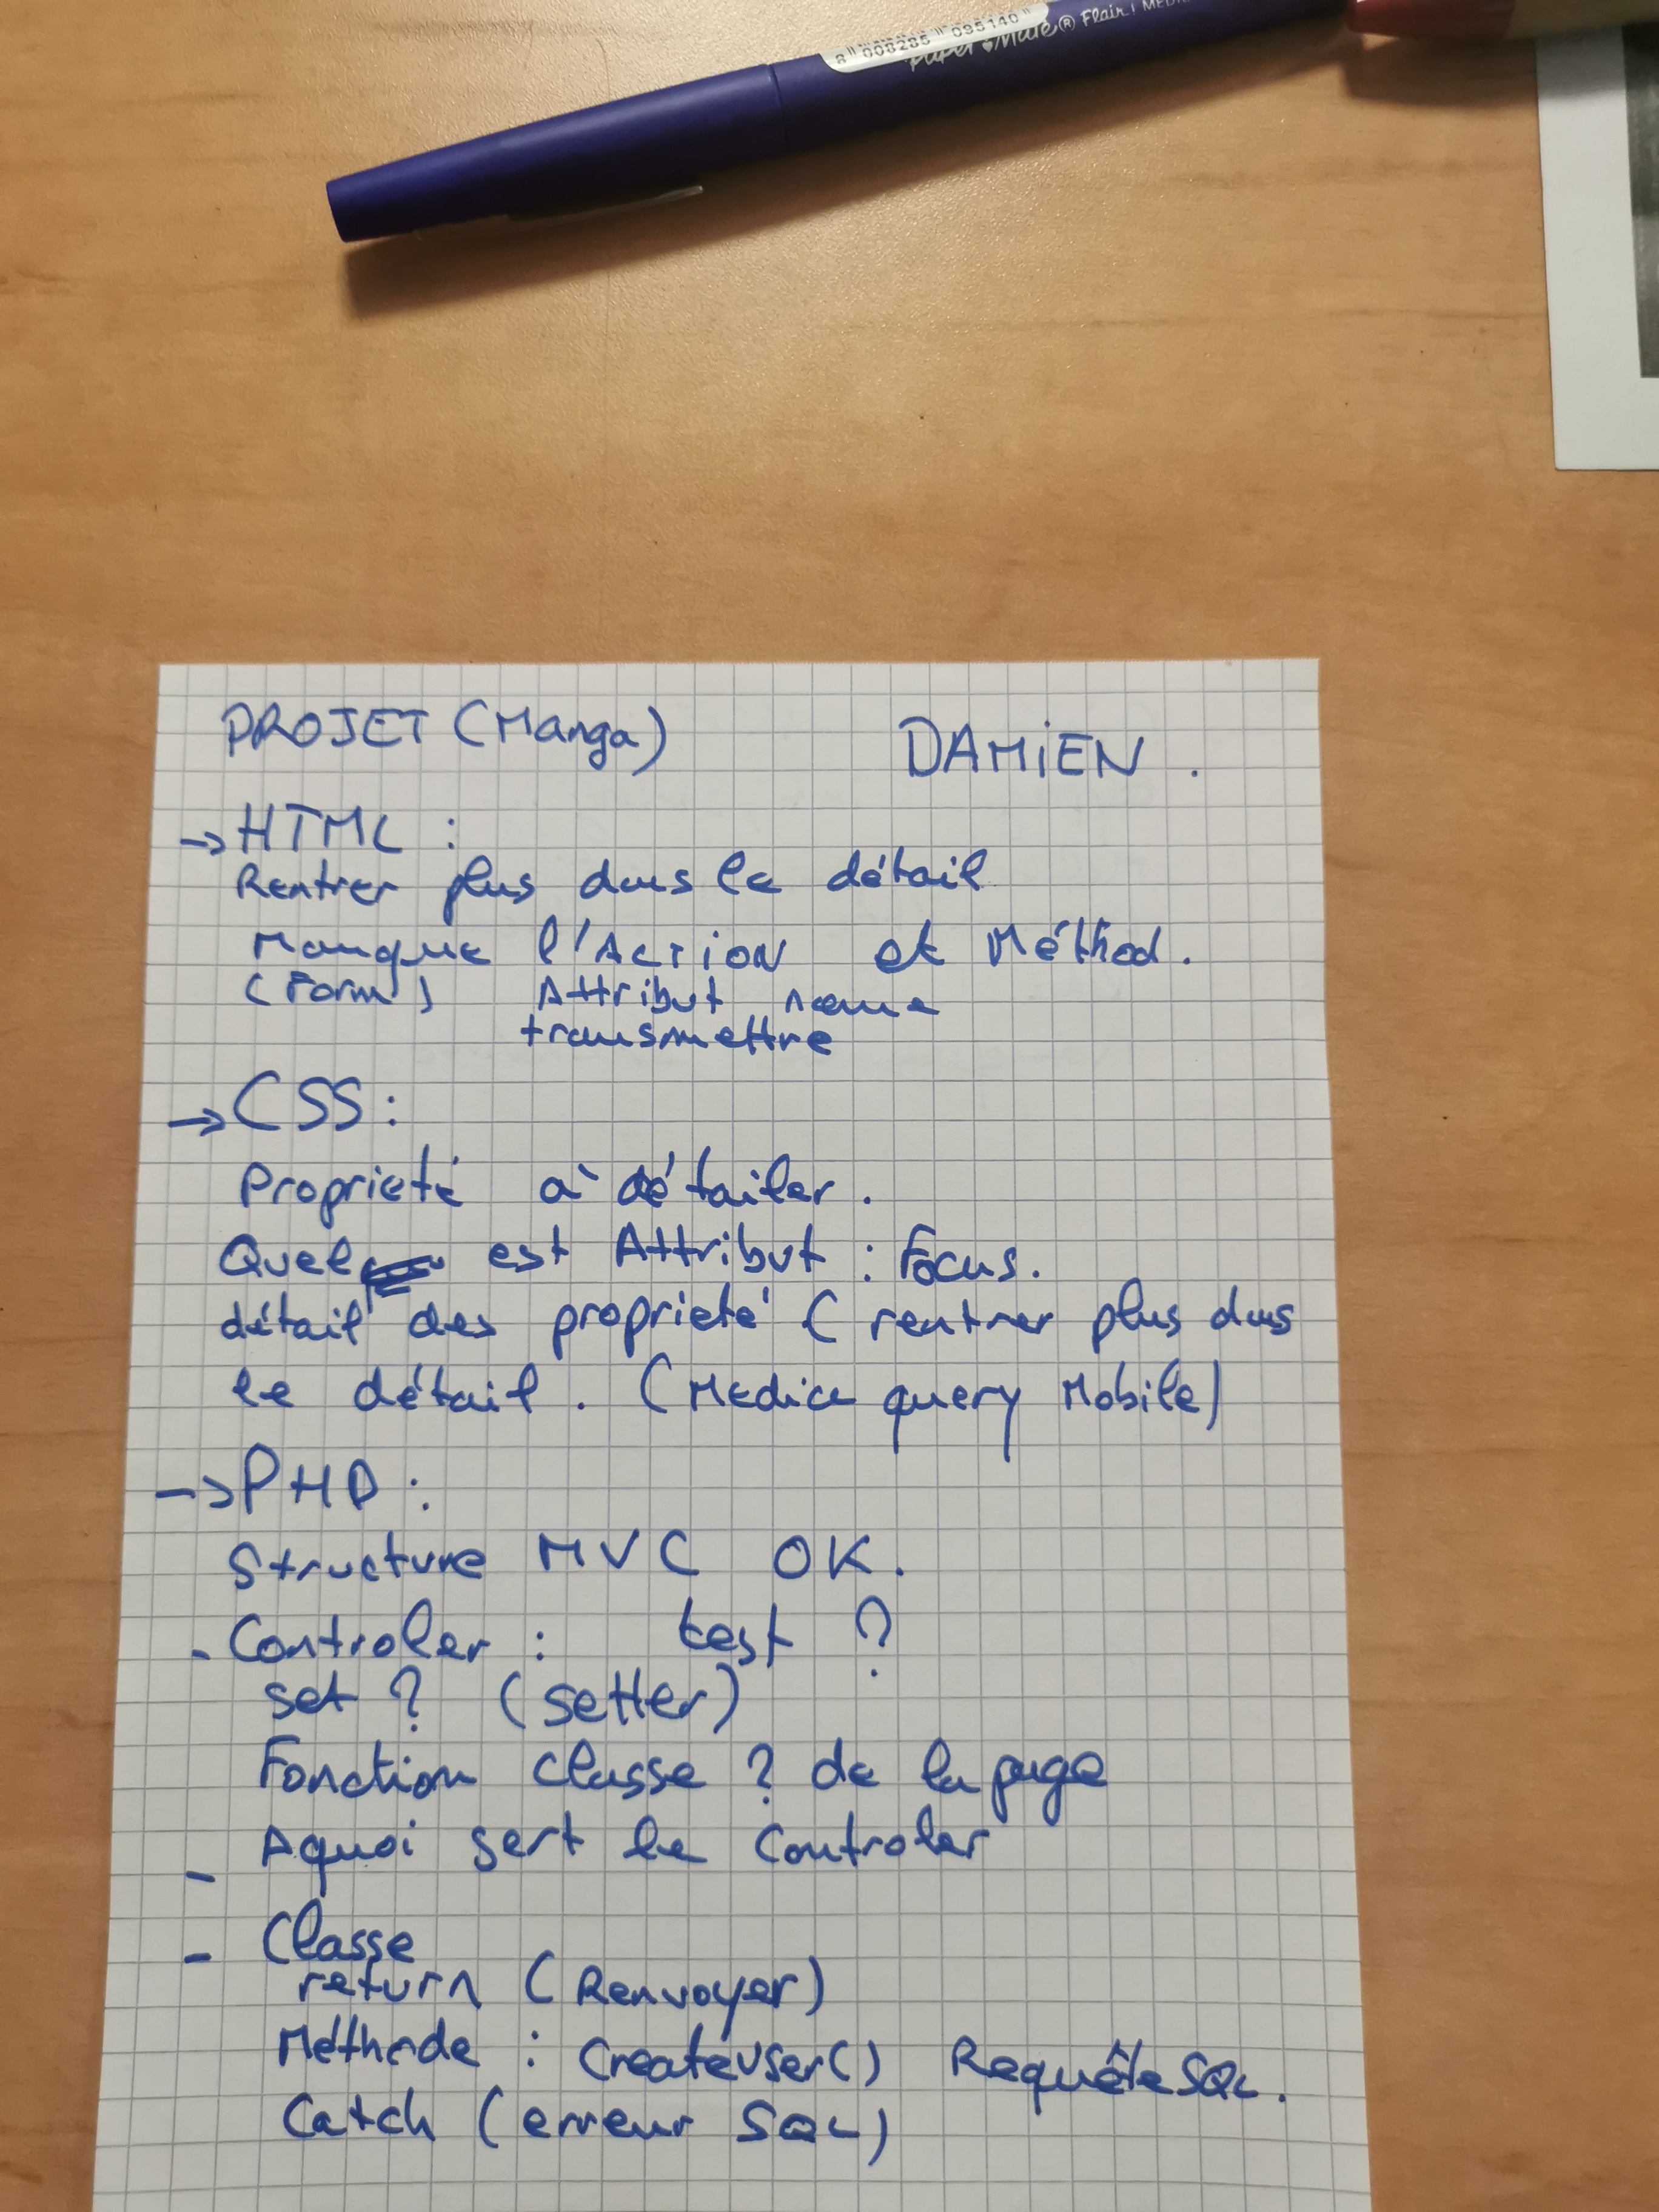 8 008285 095140
Paper Mate® Flair
PROJET (Manga)
DAMIEN.
→ HTML :
Rentrer plus dans le détail
Manque l'Action et Méthod.
(Form) Attribut name
transmettre
→ CSS :
Proprieté à détailer.
Quel est Attribut : Focus.
détail des proprieté ( rentrer plus dans
le détail. (Media query Mobile)
→ PHP :
Structure MVC OK.
- Controler : test ?
set ? (setter)
Fonction classe ? de la page
- Aquoi sert le Controler
- Classe
return (Renvoyer)
Méthode : CreateUser() Requête SQL.
Catch (erreur SQL)